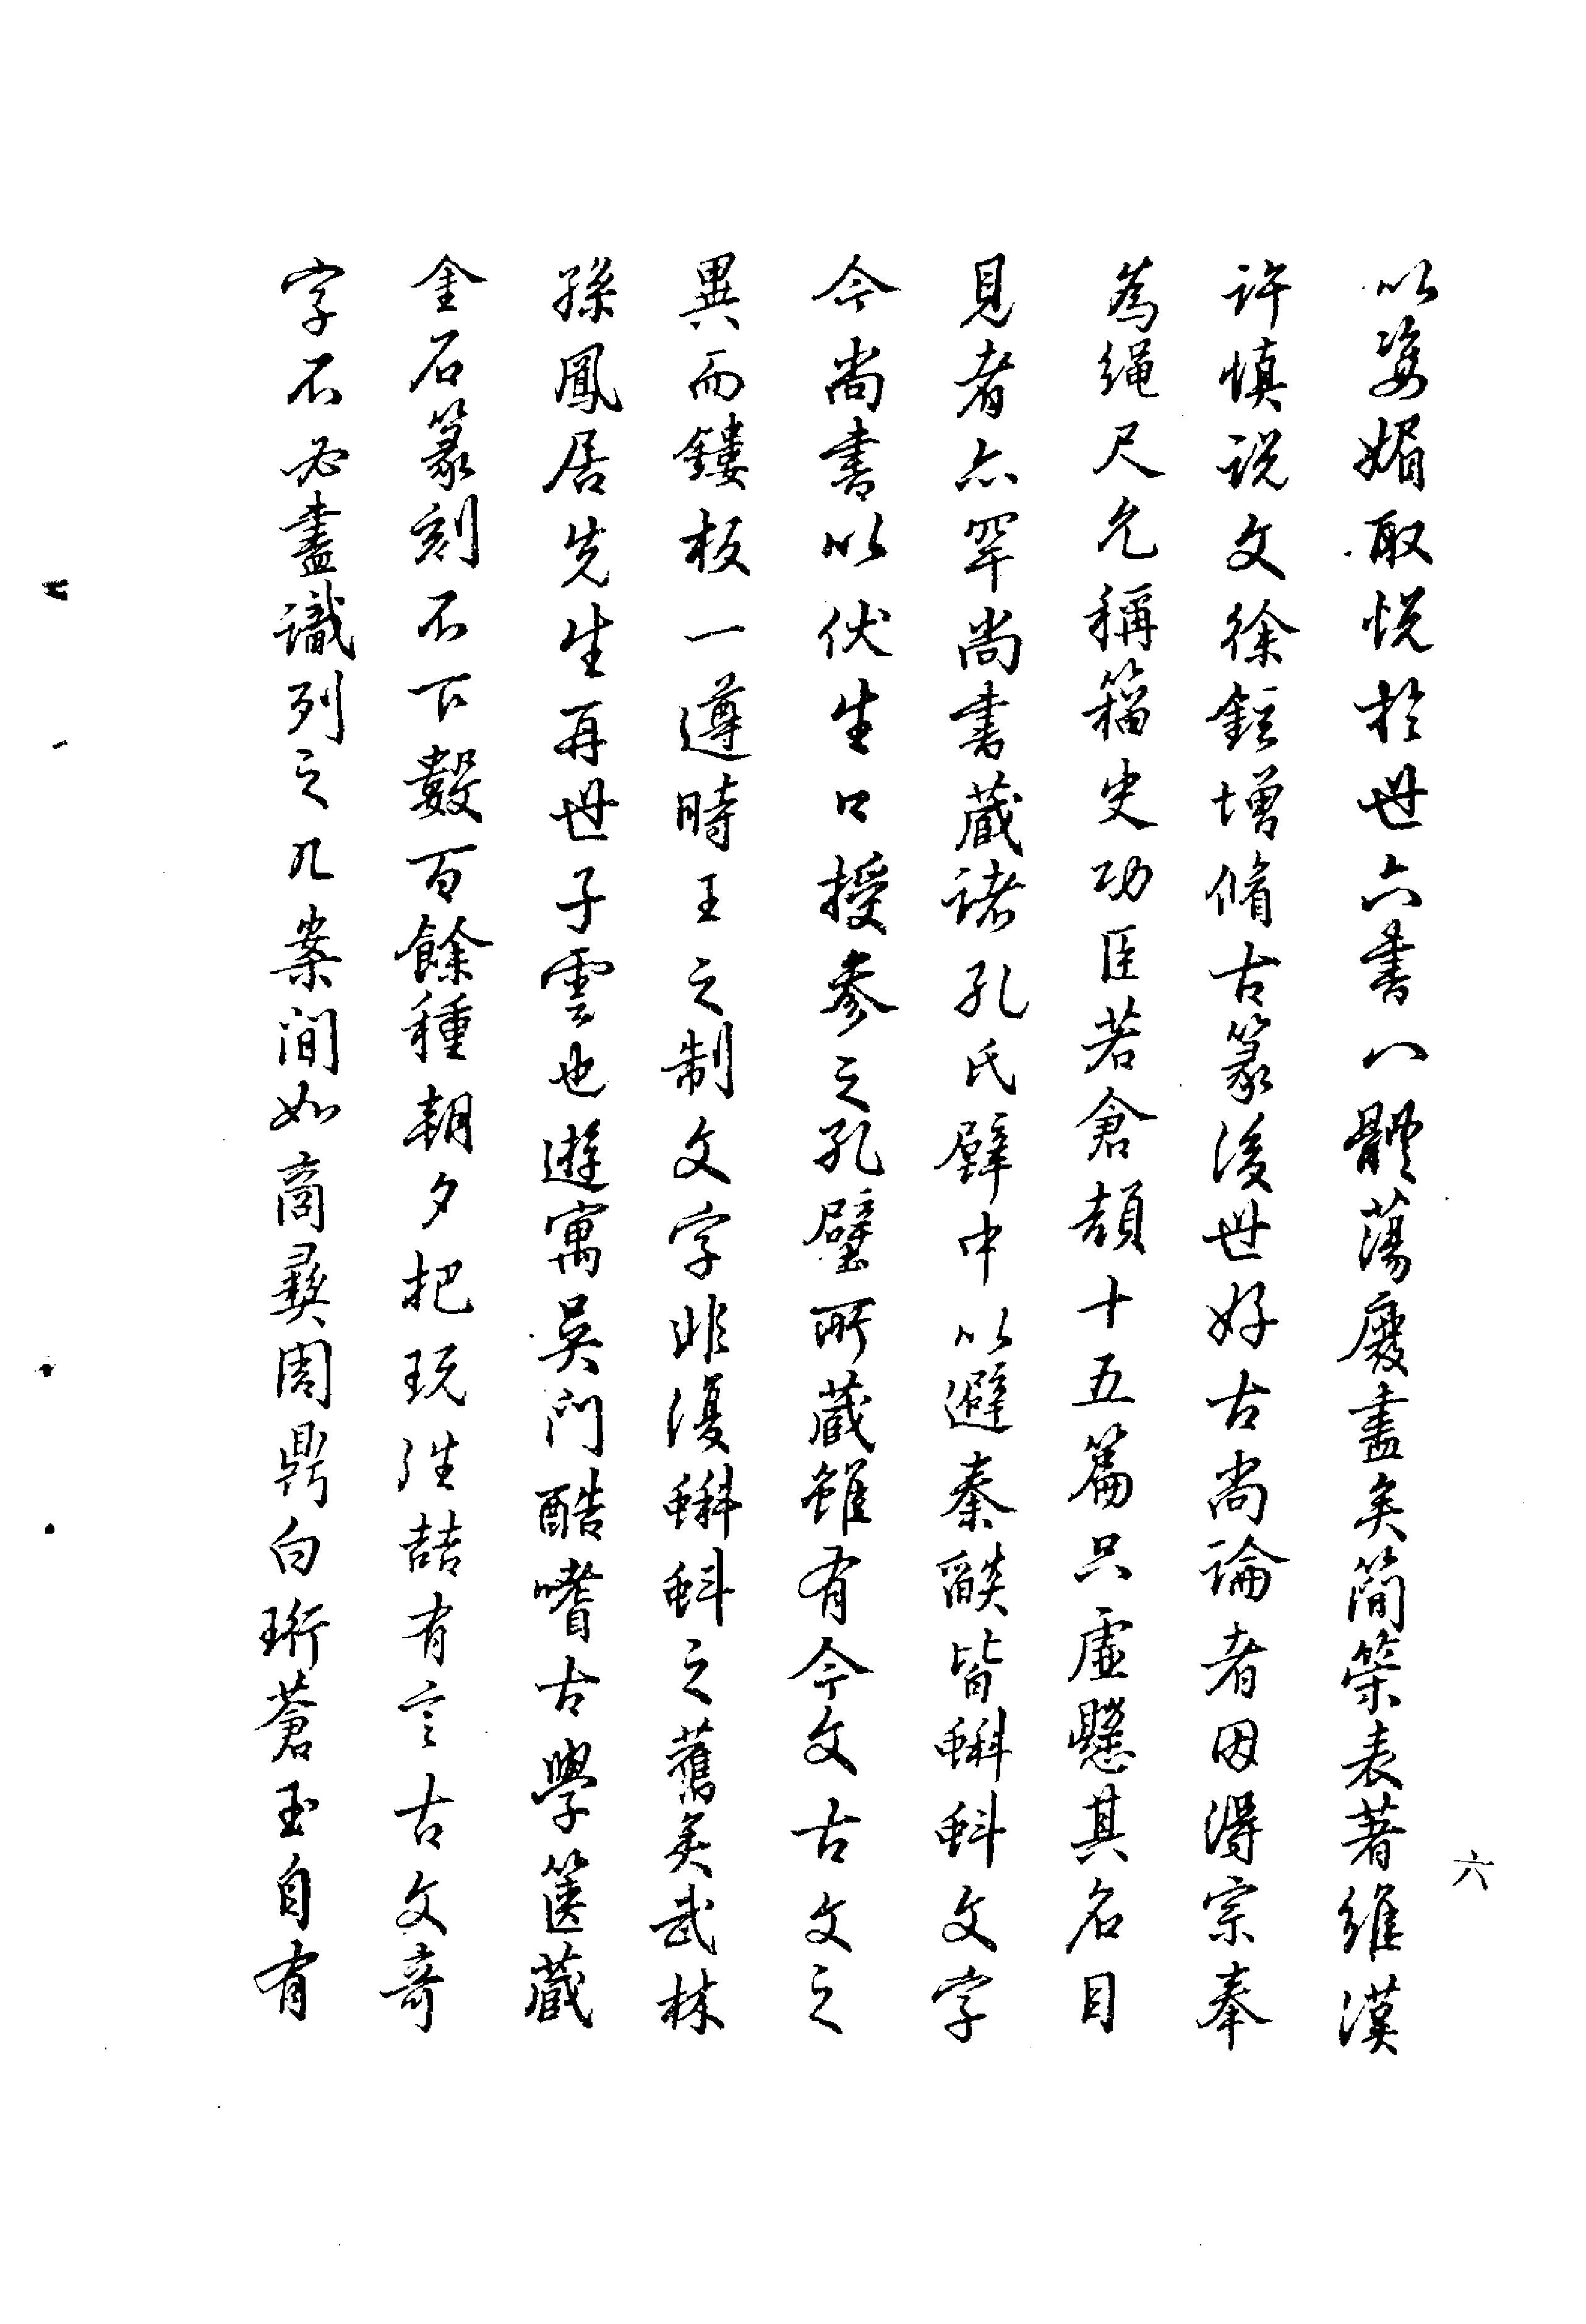 以姿媚取悅於世六書八體蕩廢盡矣簡策表著維漢
許慎說文徐鉉增脩古篆後世好古尚論者因得宗奉
為繩尺允稱籀史功臣若倉頡十五篇只虛懸其名目
見者亦罕尚書藏諸孔氏壁中以避秦燄皆蝌蚪文字
今尚書以伏生口授參之孔壁所藏雖有今文古文之
異而鏤板一遵時王之制文字非復蝌蚪之舊矣武林
孫鳳居先生再世子雲也遊寓吳門酷嗜古學篋藏
金石篆刻不下數百餘種朝夕把玩詰有言古文奇
字不必盡識列之几案間如商彝周鼎白珩蒼玉自有
六